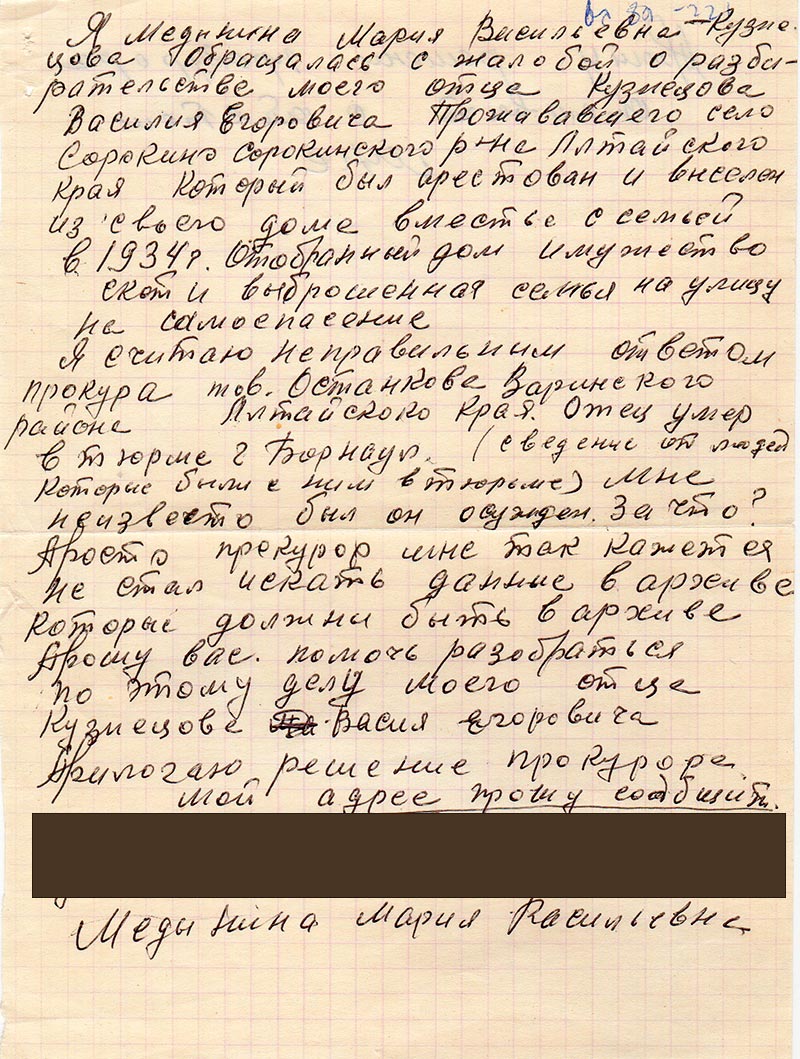 Я Медынина Мария Васильевна - Кузне-
цова Обращалась с жалобой о разби-
рательстве моего отца Кузнецова
Василия Егоровича Прожававшего село
Сорокино Сорокинского р-на Алтайского
края Который был арестован и выселен
из своего дома вместье с семьей
в 1934г. Отобранный дом имужество
скот и выброшенная семья на улицу
на самоспасение
Я считаю неправильным ответом
прокура тов. Останкова Заринского
района Алтайскоко края. Отец умер
в тюрме г Борнаул. (сведение от людей
которые были с ним в тюрьме) мне
неизвесто был он осужден. За что?
Просто прокурор мне так кажется
не стал искать данные в архиве
которые должны быть в архиве
Прошу вас. помочь разобраться
по этому делу моего отца
Кузнецова Васия Егоровича
Прилогаю решение прокурора.
мой адрес прошу сообщить.
Медынина Мария Васильевна